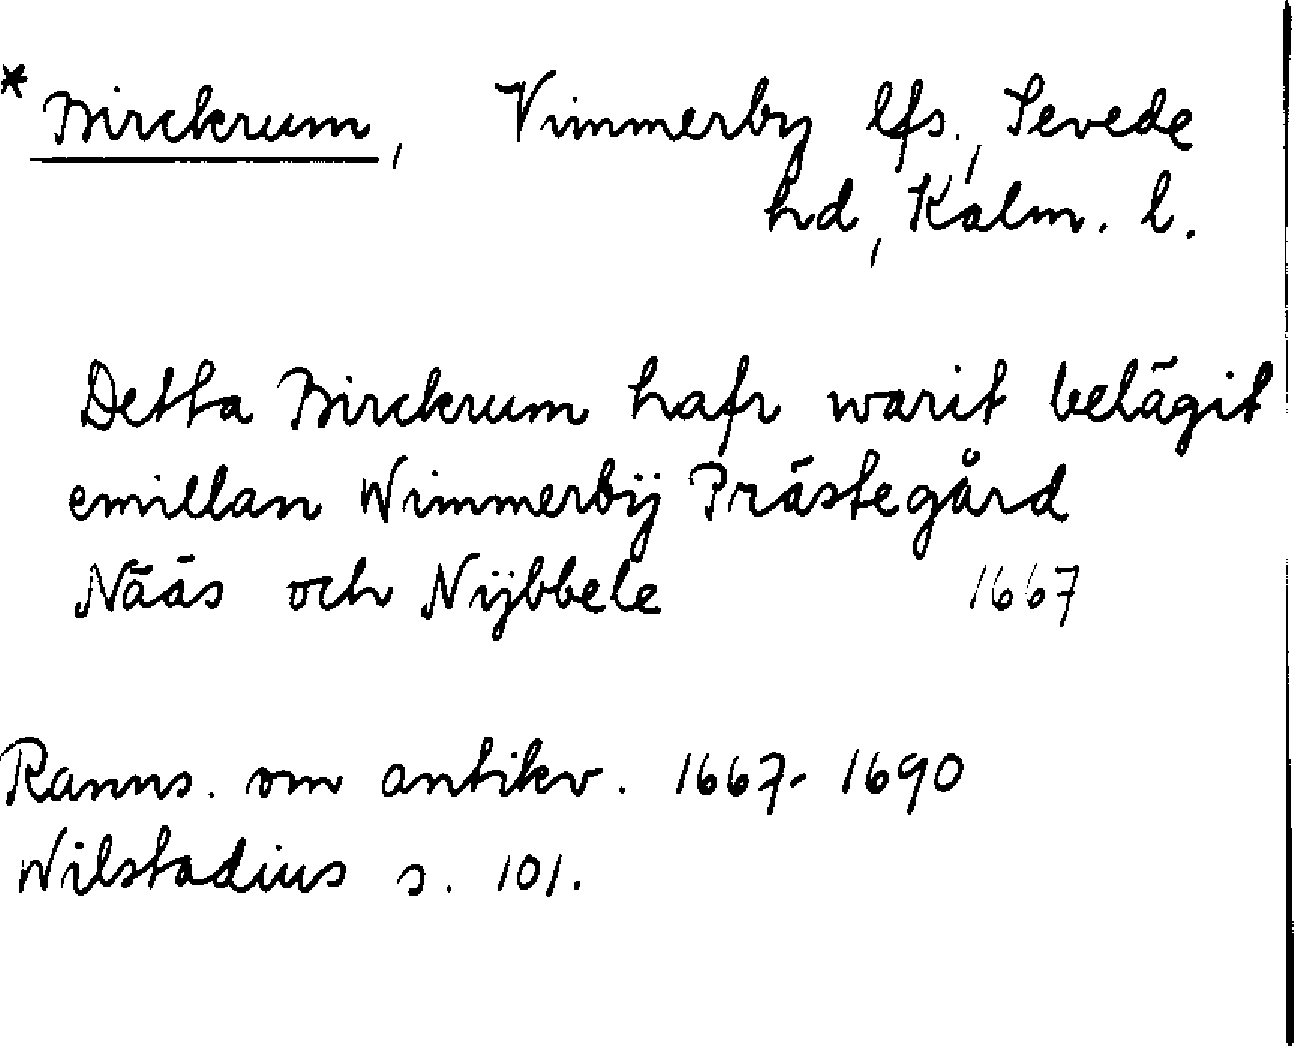 * Birckrum, Vimmerby lfs., Sevede
hd, Kalm. l.
Detta Birckrum hafr warit belägit
emillan Wimmerbÿ Prästegård
Nääs och Nijbbele 1667
Ranns. om antikv. 1667-1690
Wilstadius s. 101.